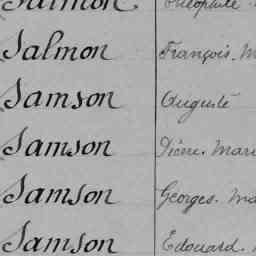 Salmon Théophile
Salmon François. M
Samson Auguste
Samson Pierre. Mari
Samson Georges. Ma
Samson Edouard.